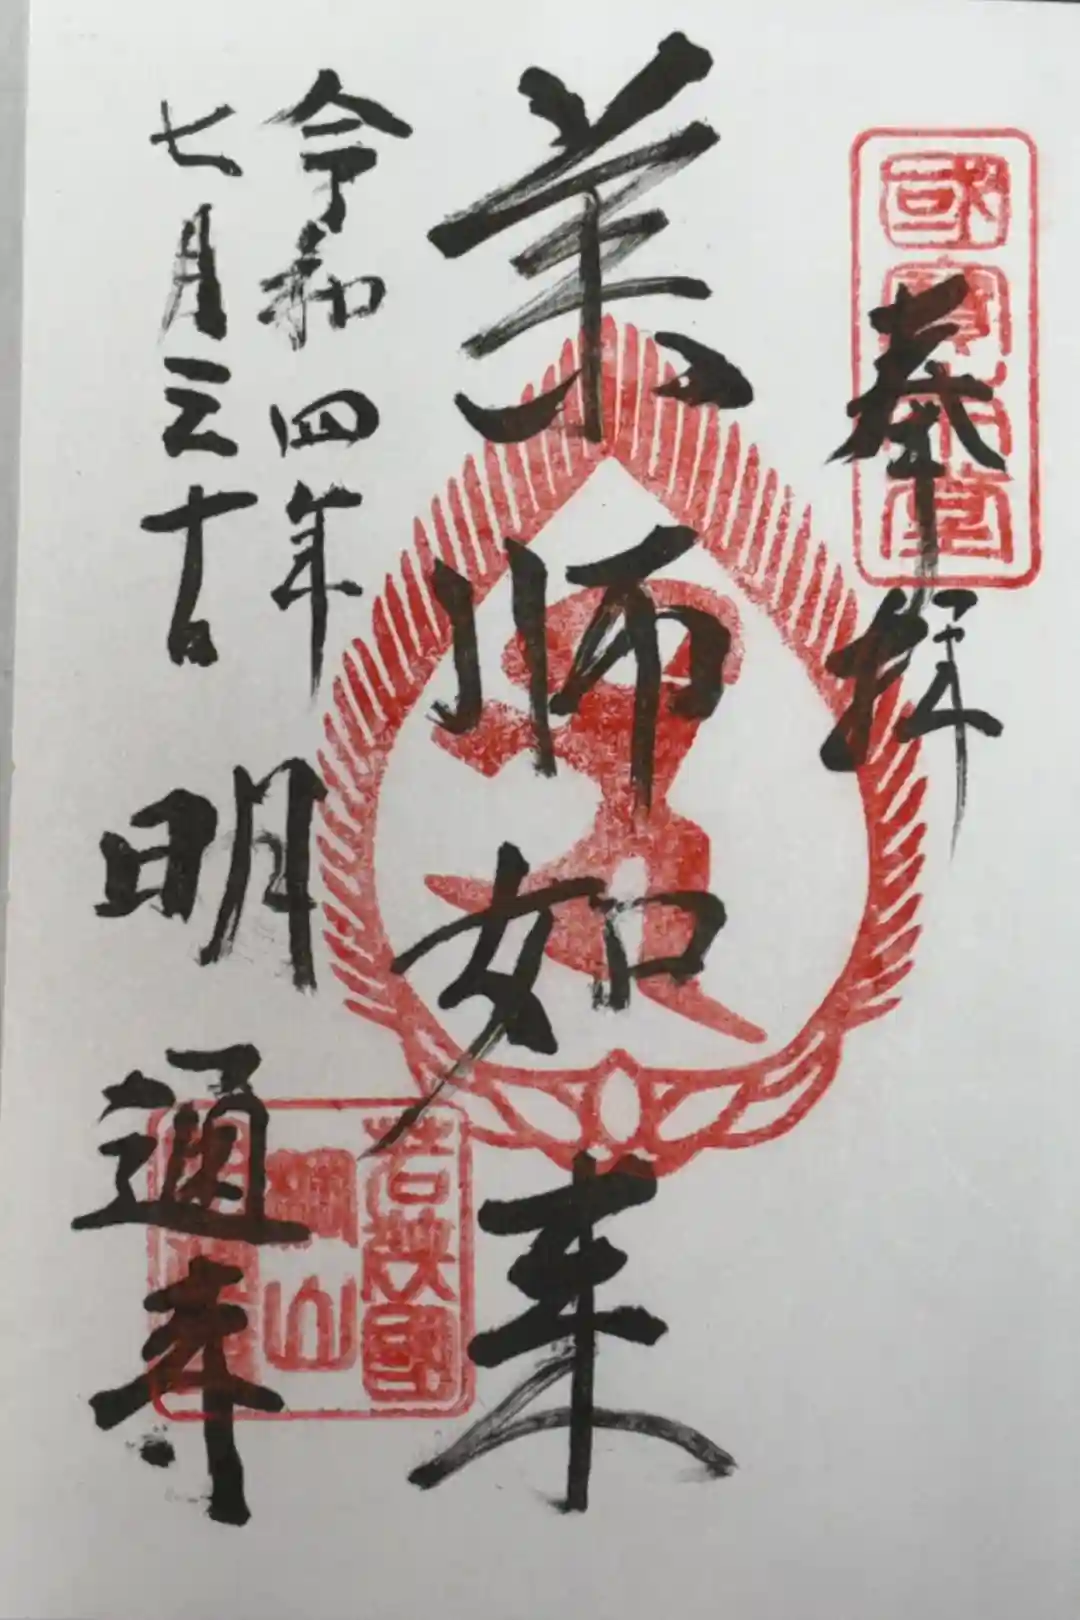 國寶本堂
奉拝
薬師如来
令和四年
七月三十日
明通寺
若狹國
山